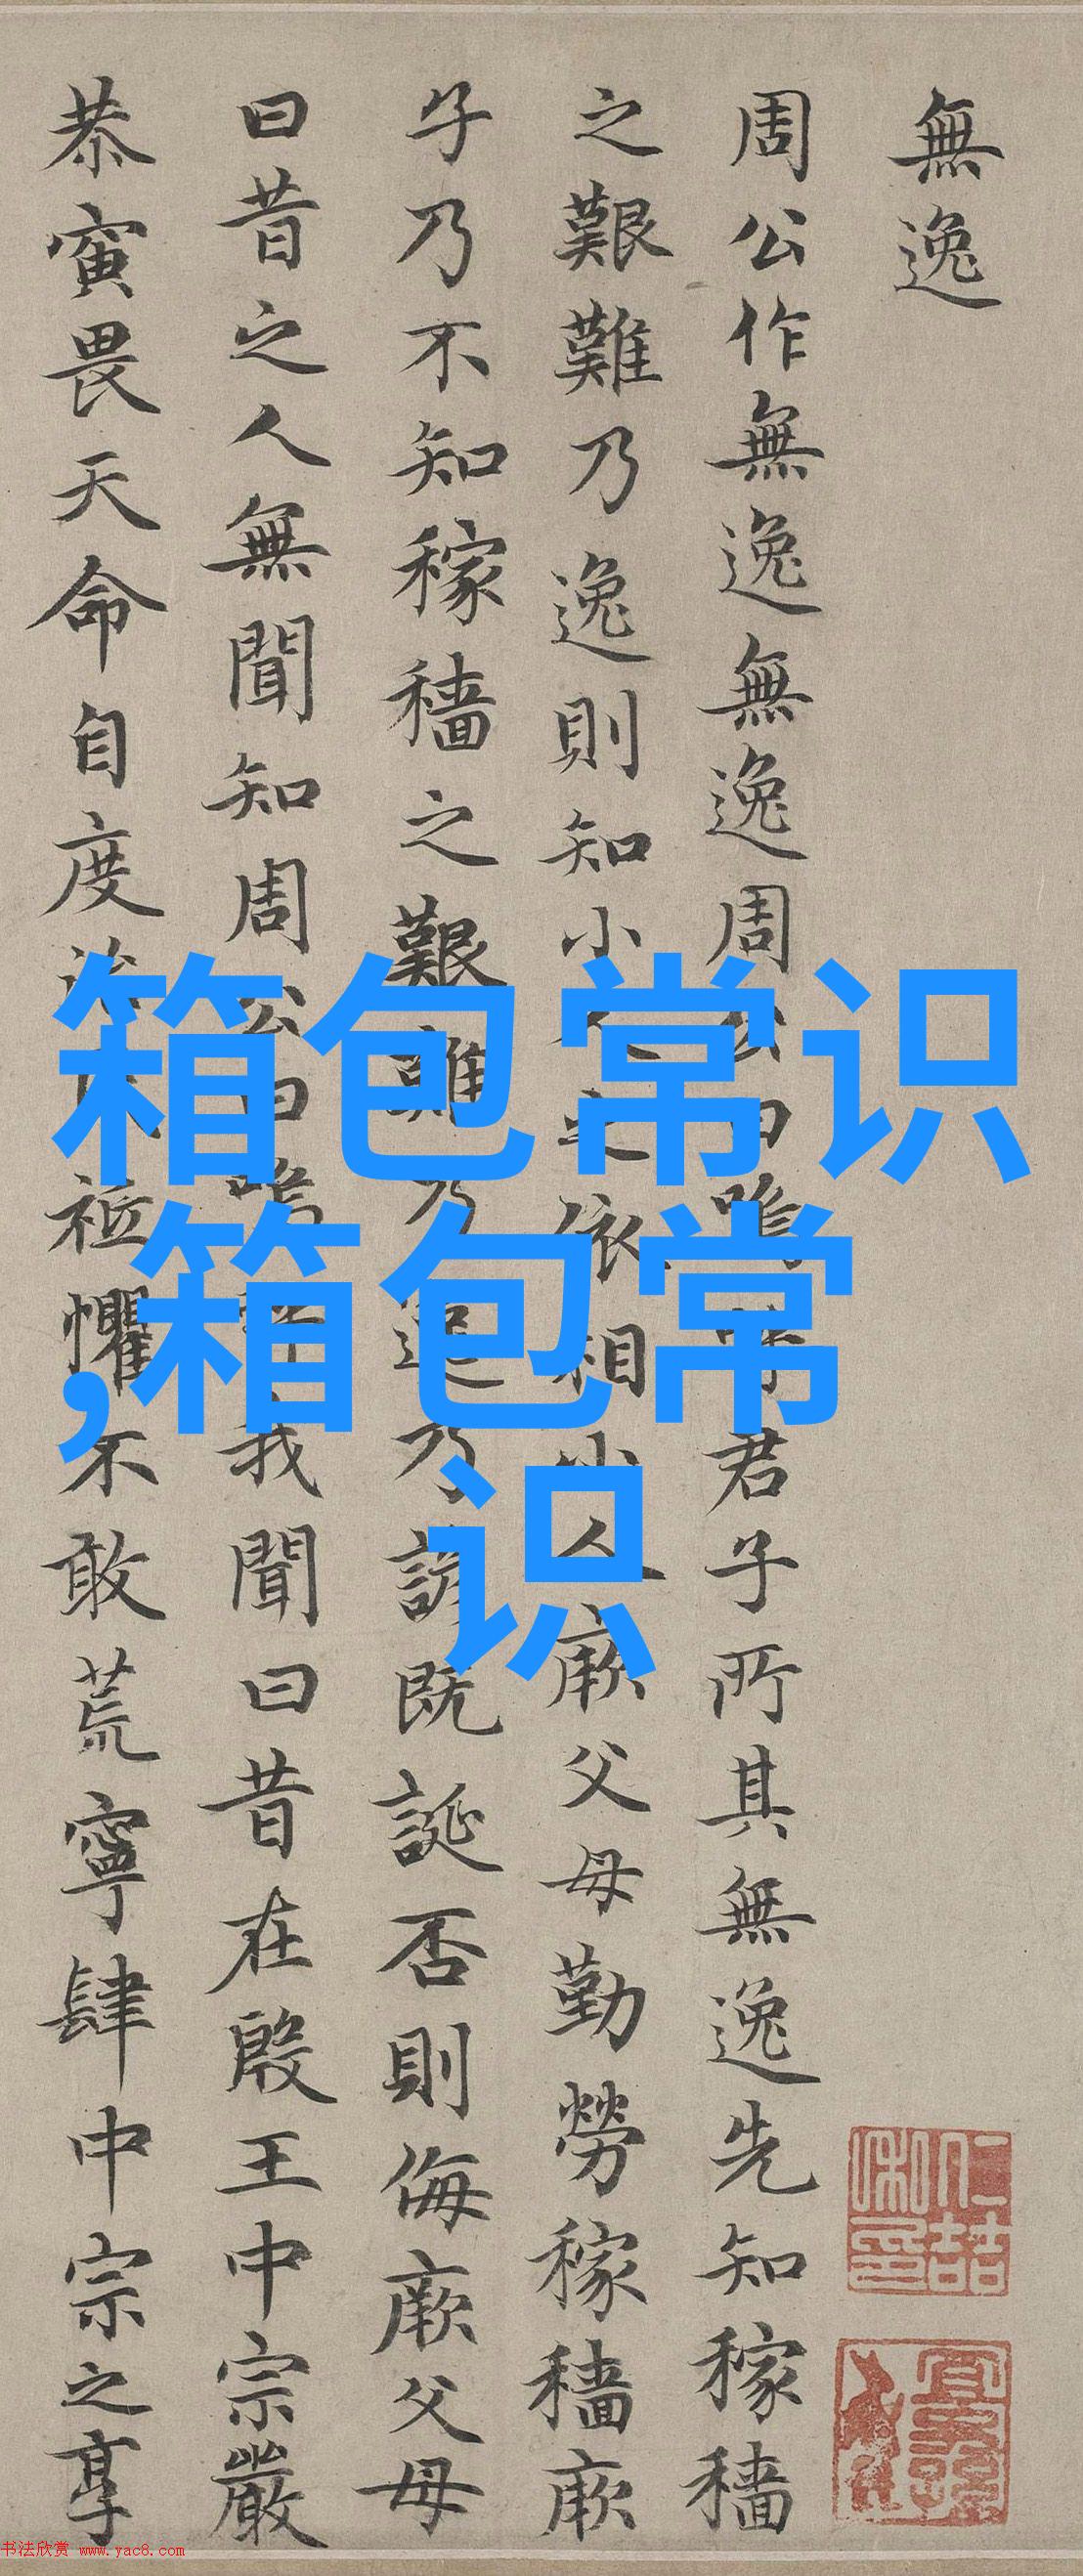 無逸
周公作無逸無逸周公曰嗚呼君子所其無逸先知稼穡
之艱難乃逸則知小人之依相小人厥父母勤勞稼穡厥
子乃不知稼穡之艱難乃逸乃諺既誕否則侮厥父母
曰昔之人無聞知周公曰嗚呼我聞曰昔在殷王中宗嚴
恭寅畏天命自度治民祗懼不敢荒寧肆中宗之享
箱包常识
,箱包常
识
书法欣赏 www.yac8.com